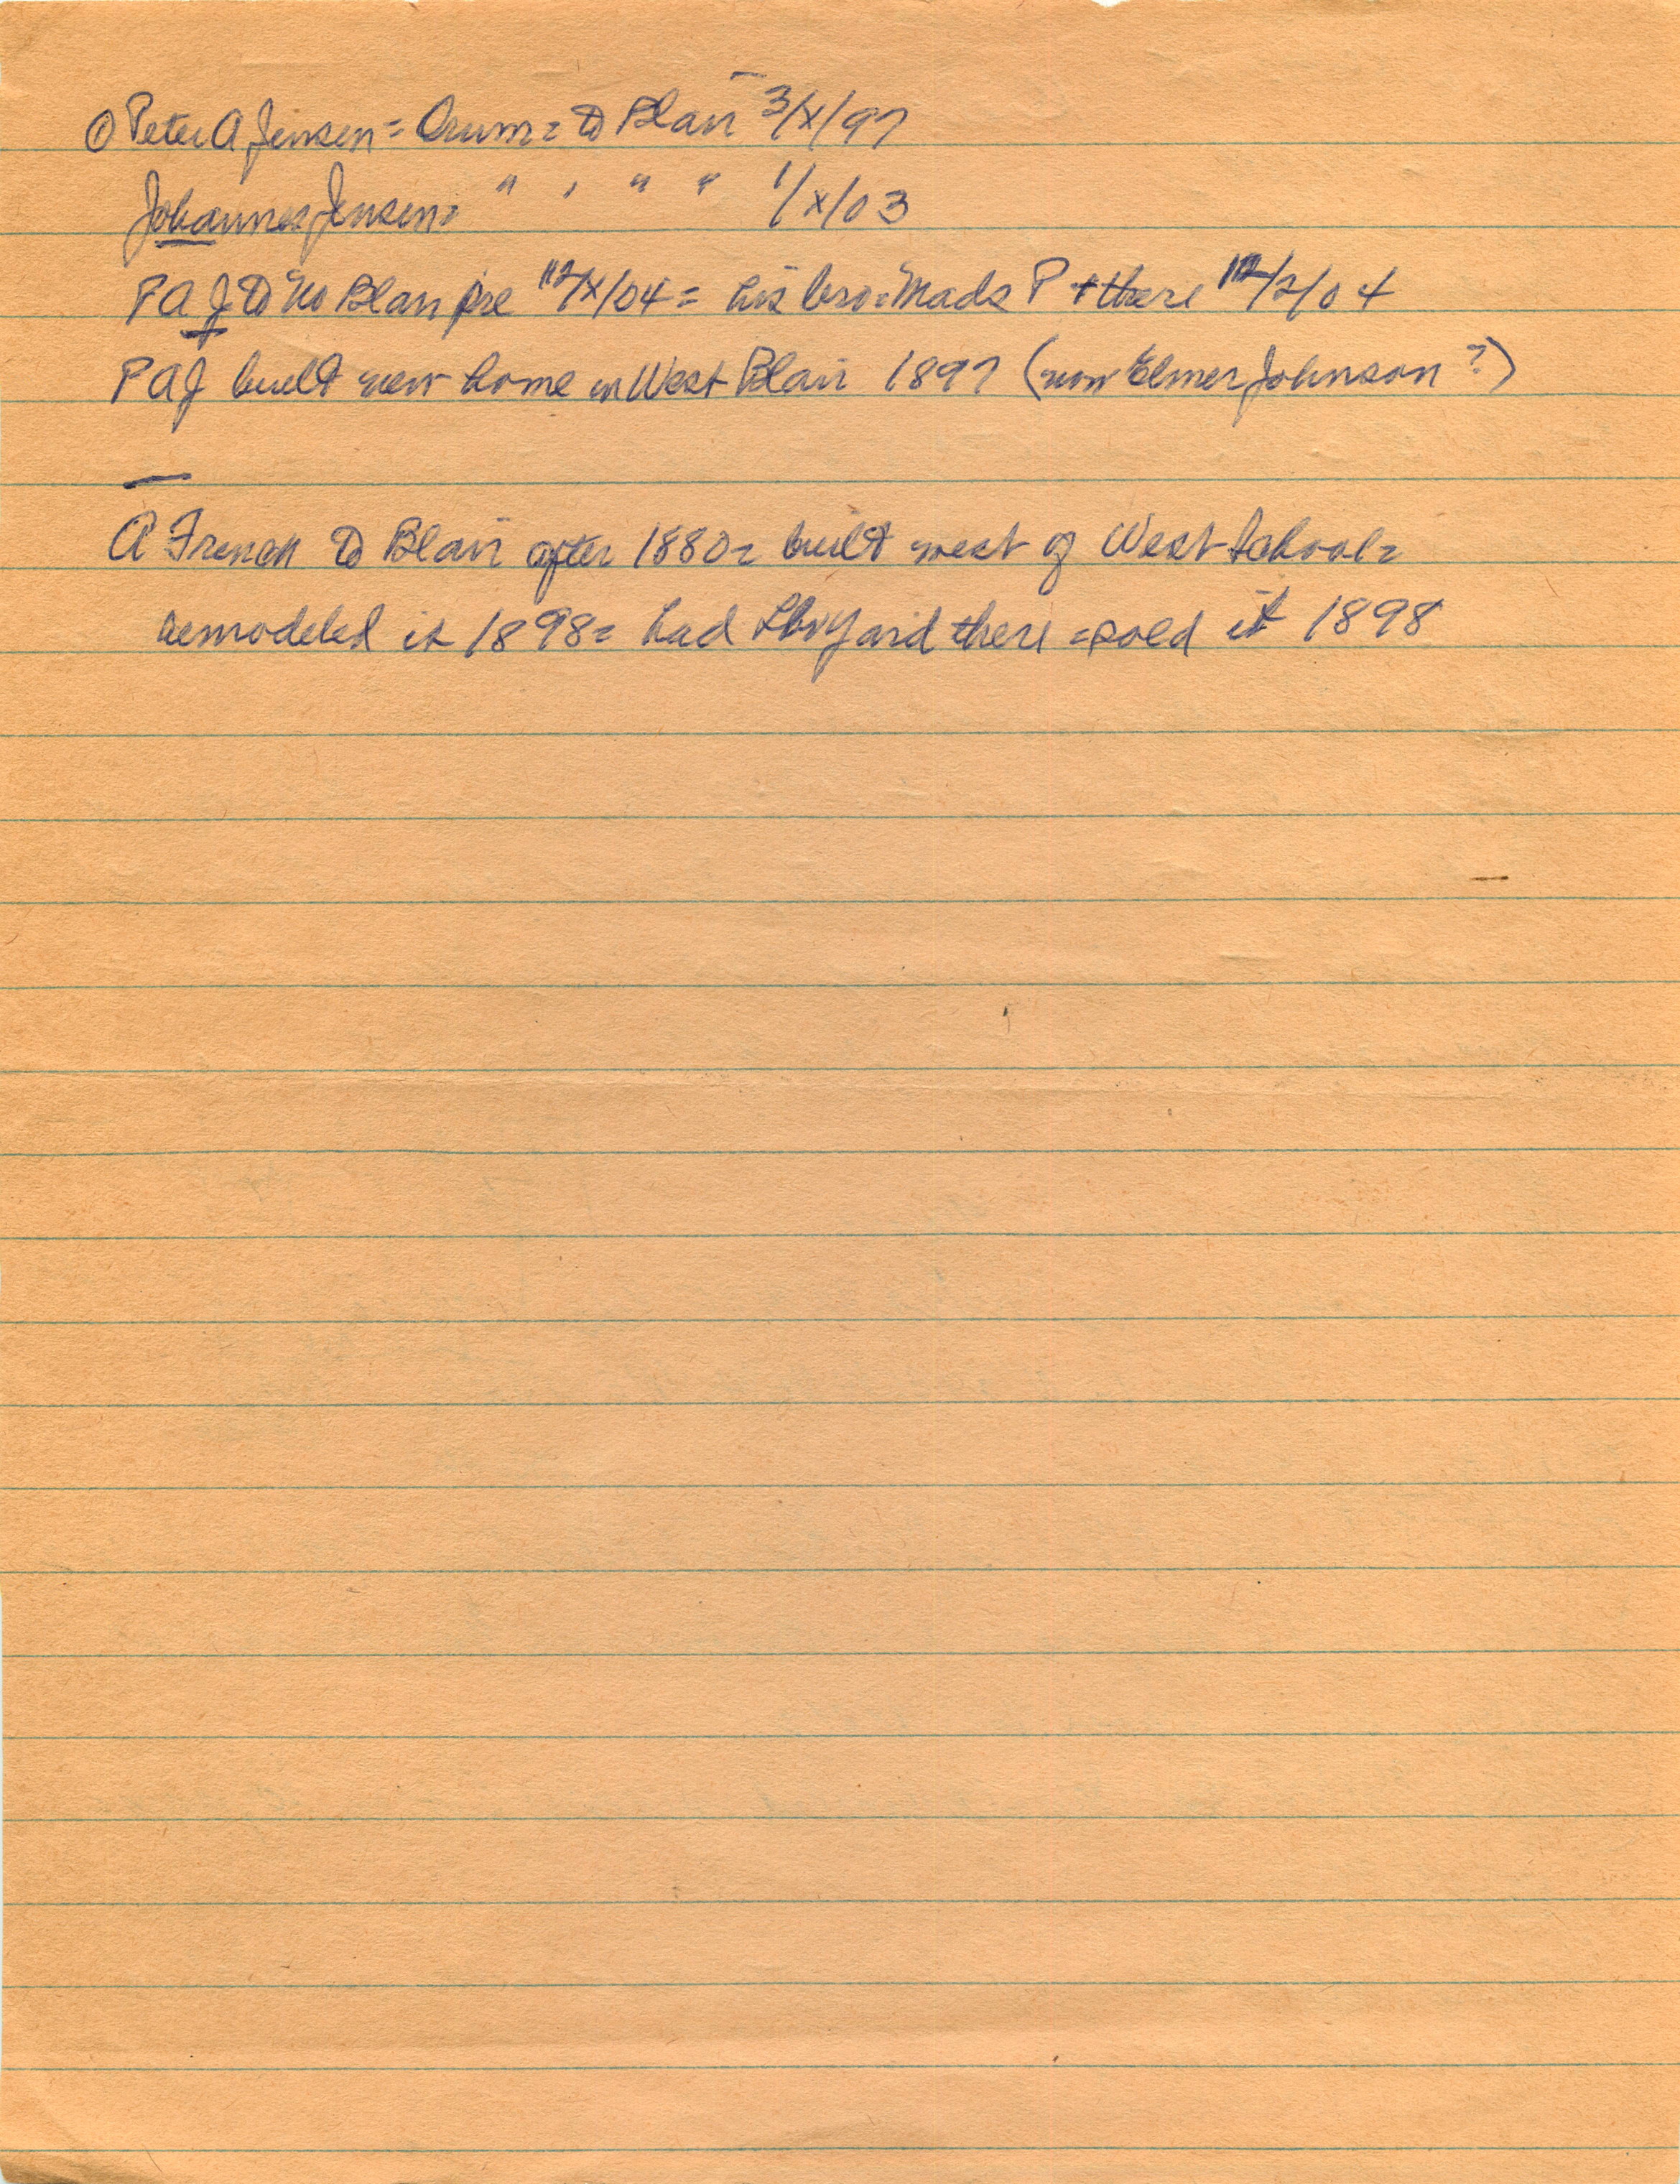 ① Peter A Jensen = Orum = to Blair 3/x/97
Johannes Jensen = " " " " 1/x/03
P A J to No Blair pre 12/x/04 = his bro = Mads P + there 12/2/04
P A J built new home in West Blair 1897 (now Elmer Johnson ?)
A French to Blair after 1880 = built west of West School =
remodeled it 1898 = had yard there = sold it 1898